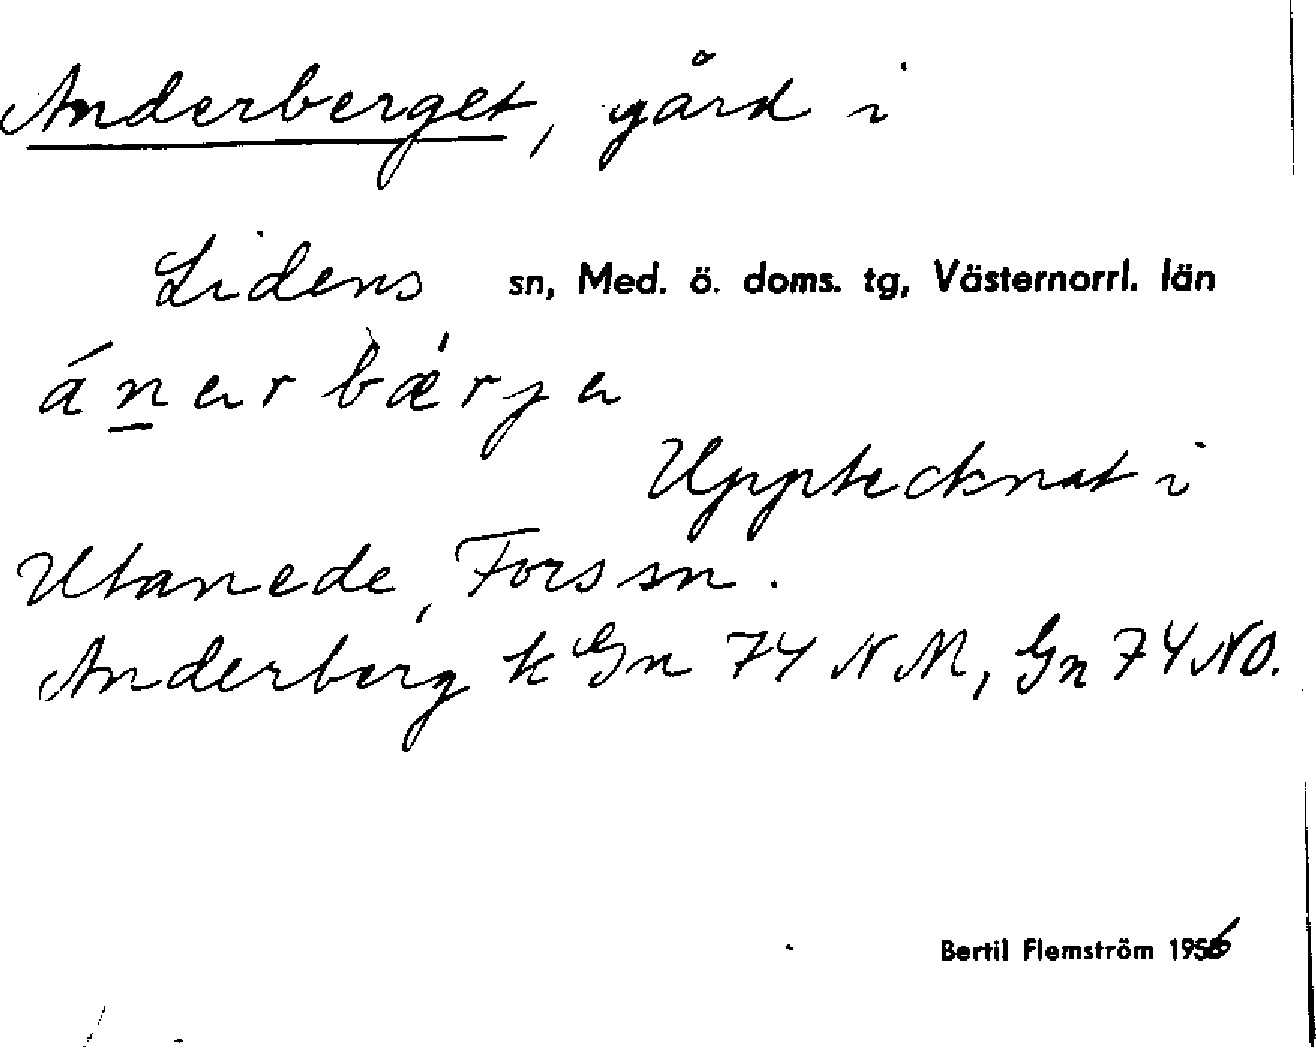 Anderberget, gård i
Lidens sn, Med. ö. doms. tg, Västernorrl. län
án̲ar bǽrja
Upptecknat i
Utanede, Fors sn.
Anderberg k Gn 74 NM, Gn 74 NO.
Bertil Flemström 1956